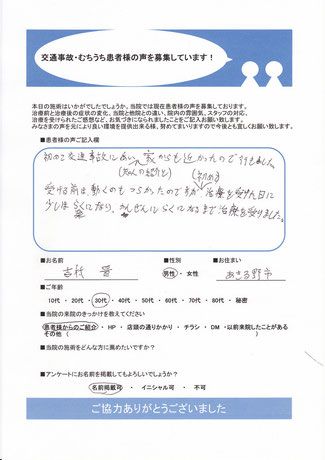 交通事故・むちうち患者様の声を募集しています！
本日の施術はいかがでしたでしょうか。当院では現在患者様の声を募集しております。
治療前と治療後の症状の変化、当院と他院との違い、院内の雰囲気、スタッフの対応、
治療を受けられたご感想など、お気づきになられましたことをご記入お願い致します。
みなさまの声を元により良い環境を提供出来る様、努めてまいりますので今後とも宜しくお願い致します。
■患者様の声ご記入欄
初めて交通事故にあい、家からも近かったので行きました。
(知人の紹介と)
(初めて)
受ける前は、動くのもつらかったので すが、治療を受けた日に
少しは らくになり、かんぜんにらくになるまで治療を受けました。
■お名前 ■性別 ■お住まい
男性 ・ 女性 あきる野市
■ご年齢
10代 ・ 20代 ・ 30代 ・ 40代 ・ 50代 ・ 60代 ・ 70代 ・ 80代 ・ 秘密
■当院の来院のきっかけを教えてください
患者様からのご紹介 ・ HP ・ 店頭の通りかかり ・ チラシ ・ DM ・以前来院したことがある
その他 ( )
■当院の施術をどんな方に薦めたいですか？
■アンケートにお名前を掲載してもよろしいでしょうか？
名前掲載可 ・ イニシャル可 ・ 不可
ご協力ありがとうございました